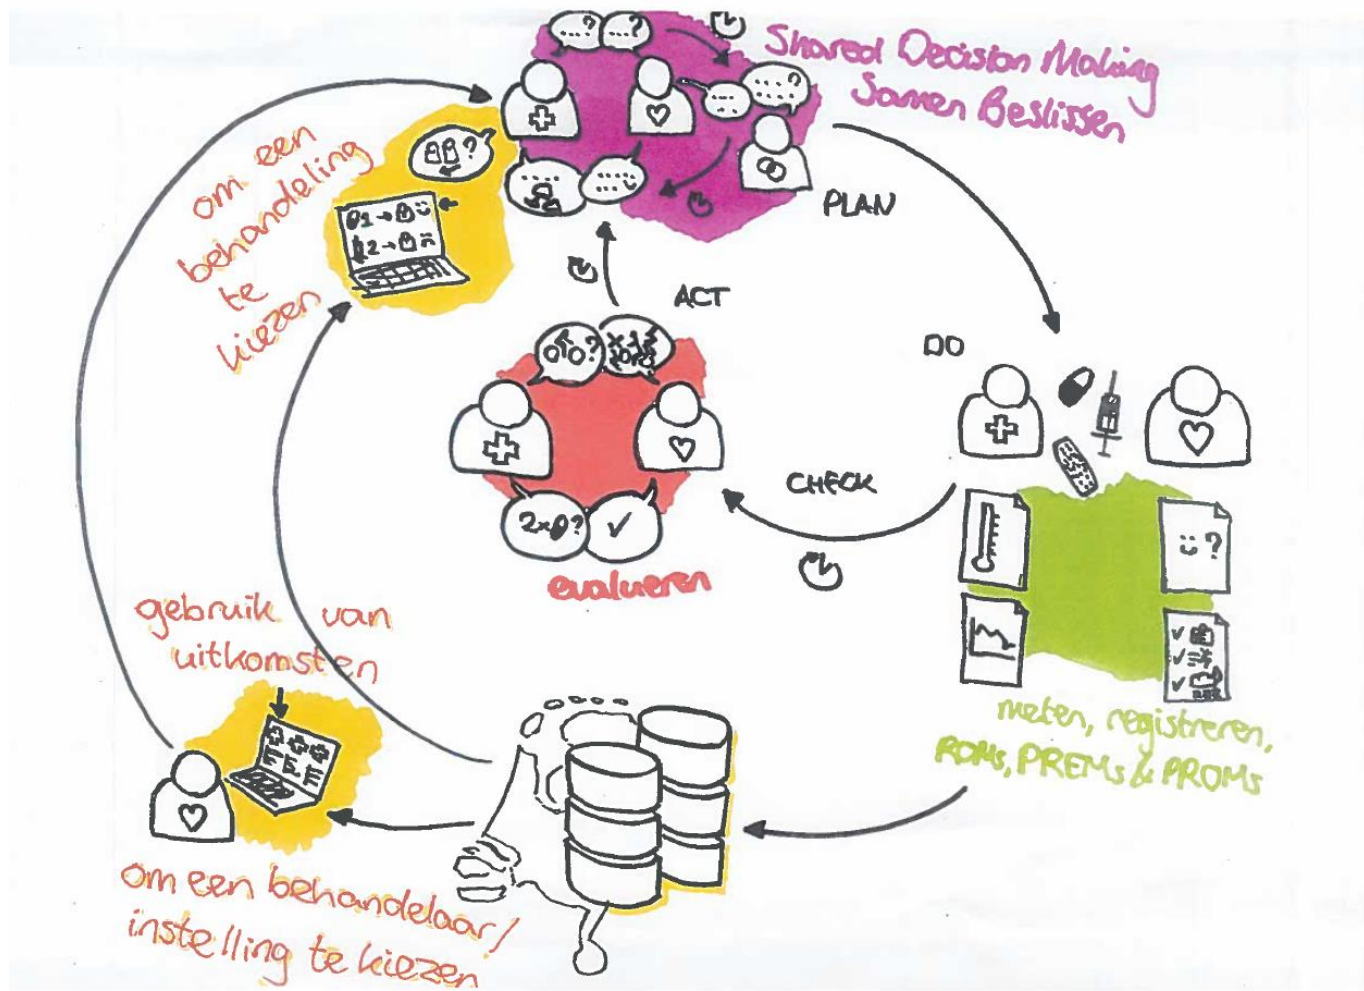 Shared Decision Making
Samen Beslissen
PLAN
om een
behandeling
te
kiezen
?
1 →
2 →
ACT
DO
?
CHECK
2x ?
evalueren
?
gebruik van
uitkomsten
meten, registreren,
ROMs, PREMs & PROMs
om een behandelaar/
instelling te kiezen